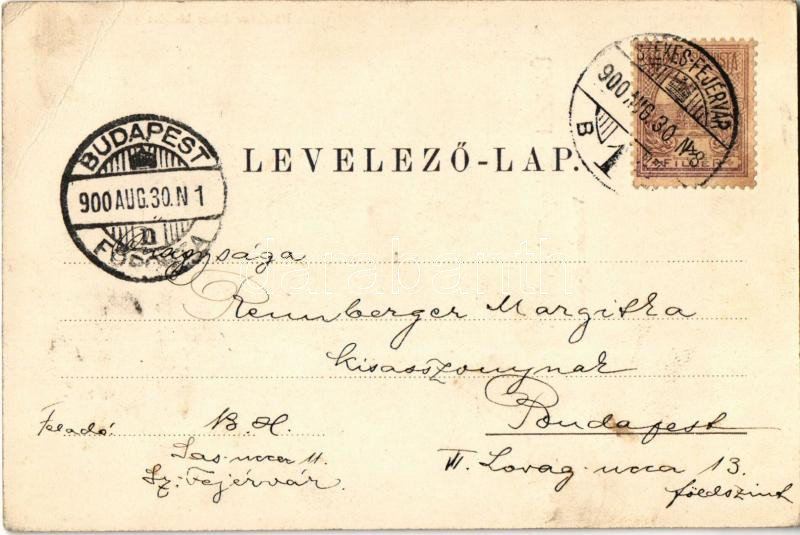 SZÉKES-FEJÉRVÁR
900 AUG. 30. N 8
B
1
FILLÉR
BUDAPEST
900 AUG. 30. N 1
n
FŐPOSTA
LEVELEZŐ-LAP.
Nagysága
Rennberger Margitka
kisasszonynak
Budapest
VI. Lovag-ucca 13.
földszint
Feladó: B. H.
Sas-ucca 11.
Sz. Fejérvár.
darabanth